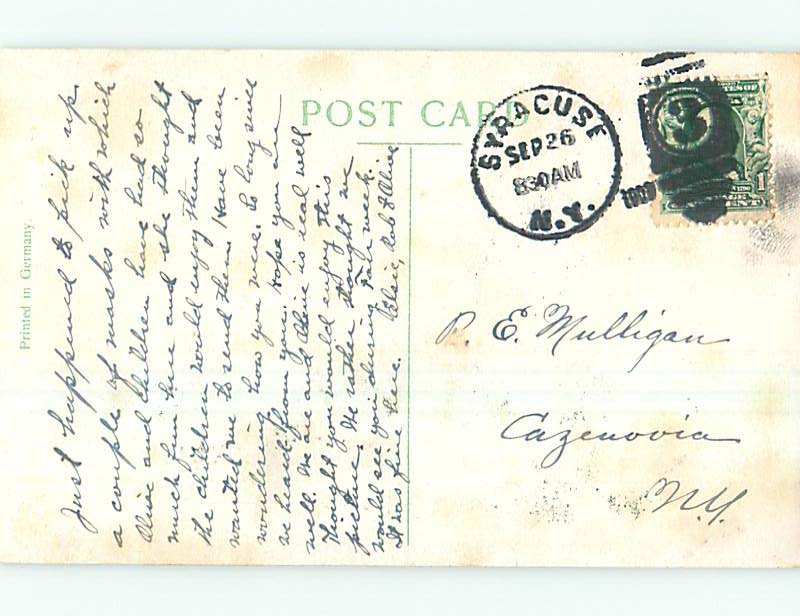 POST CARD
SYRACUSE
SEP 26
830AM
N.Y.
1909
1
Printed in Germany.
Just happened to pick up
a couple of masks with which
Olive and children have had so
much fun here and she thought
the children would enjoy them and
wanted me to send them. Have been
wondering how you were. So long since
we heard from you. Hope you are
well. We are and Olive is real well
Thought you would enjoy this
picture. We rather thought we
would see you during Fair week.
It was fine here. Olive
P. E. Mulligan
Cazenovia
N.Y.